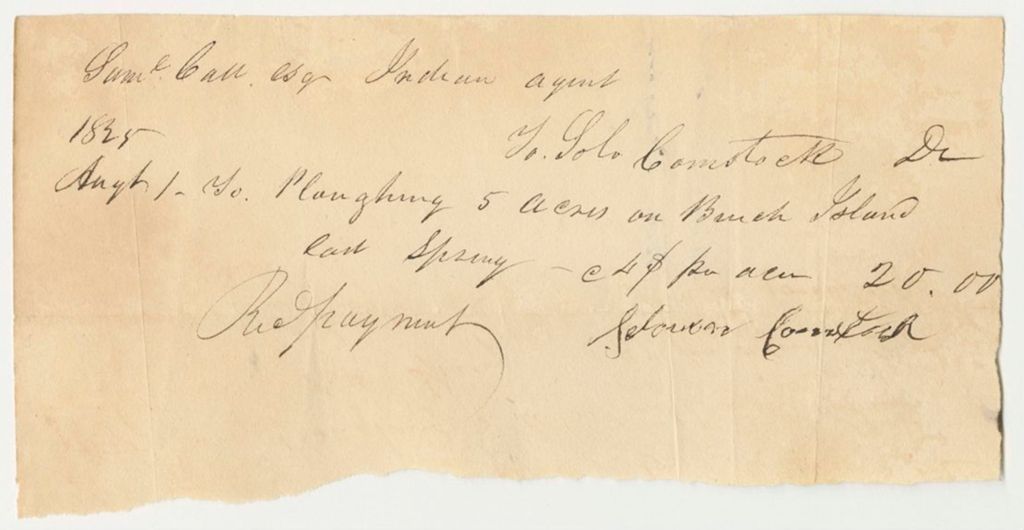 Saml. Call. esqr Indian agent
1825 To. Solo Comstock Dr
Augt. 1 - To. Ploughing 5 acres on Birch Island
last Spring - c 4$ pr acre 20.00
Recd payment Solomon Comstock